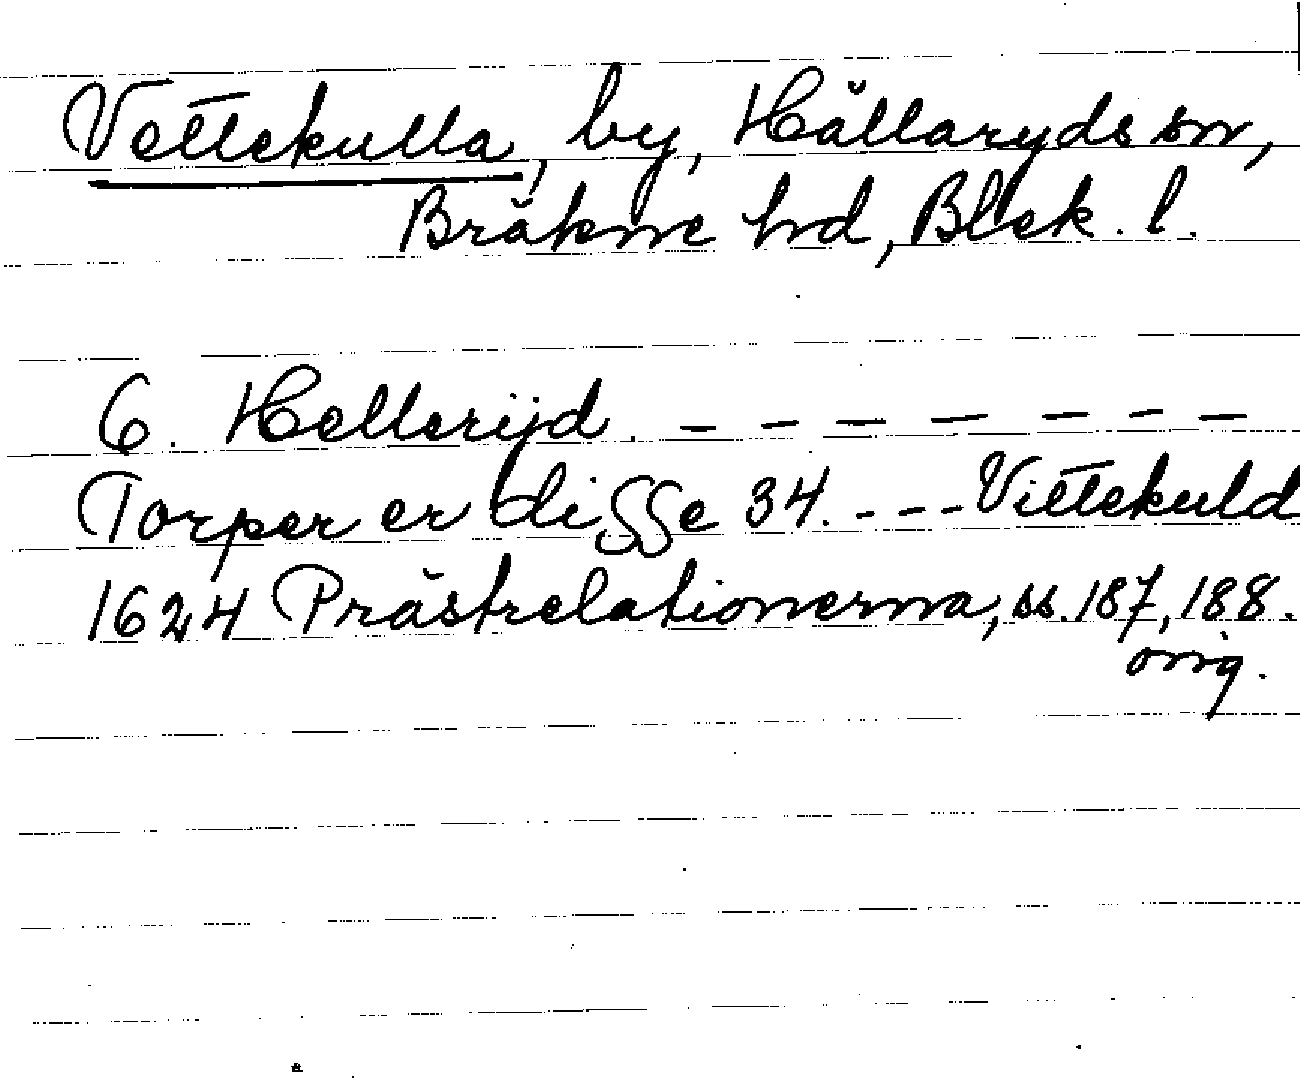 Vettekulla, by, Hällaryds sn,
Bräkne hd, Blek. l.
6. Hellerijd. - - - - - - -
Torper er disse 34. - - - Vittekuld
1624 Prästrelationerna, ss. 187, 188.
orig.